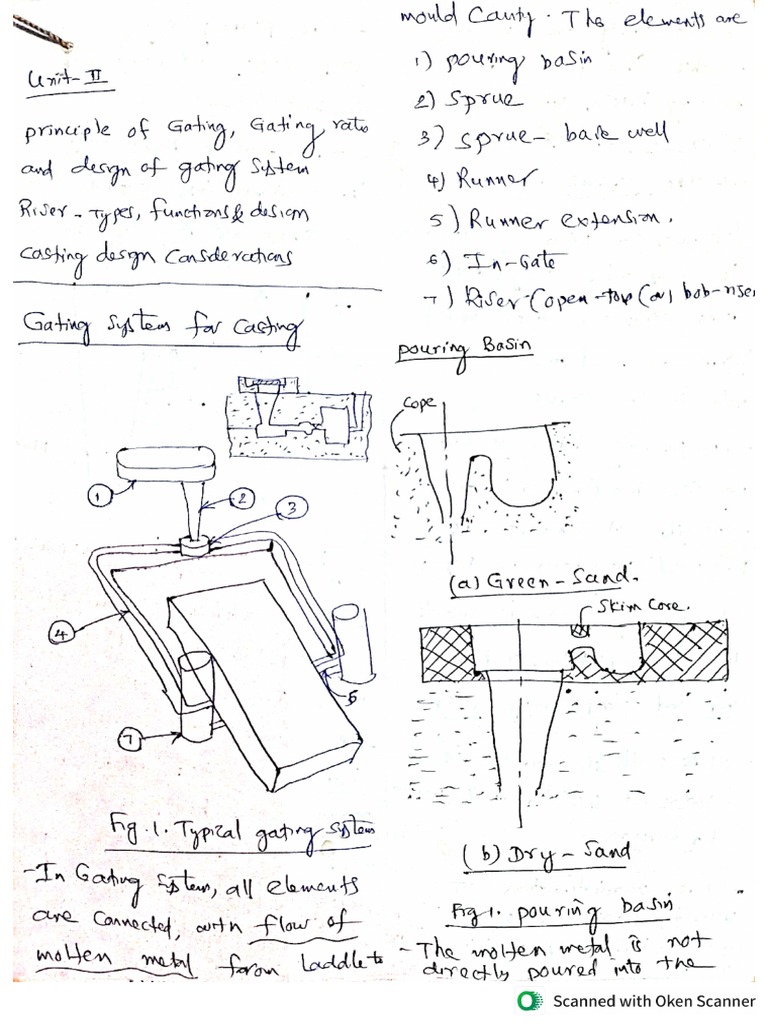 Unit-II
principle of Gating, Gating ratio
and design of gating system
Riser - Types, functions & design
casting design considerations
Gating system for casting
1
2
3
4
5
7
Fig.1. Typical gating system
- In Gating system, all elements
are connected, with flow of
molten metal from Laddle to
mould Cavity. The elements are
1) pouring basin
2) Sprue
3) sprue- base well
4) Runner
5) Runner extension.
6) In-Gate
7) Riser (open-top (or) bob-riser
pouring Basin
Cope
(a) Green-Sand.
Skim Core.
(b) Dry-Sand
Fig 1. pouring basin
- The molten metal is not
directly poured into the
Scanned with Oken Scanner